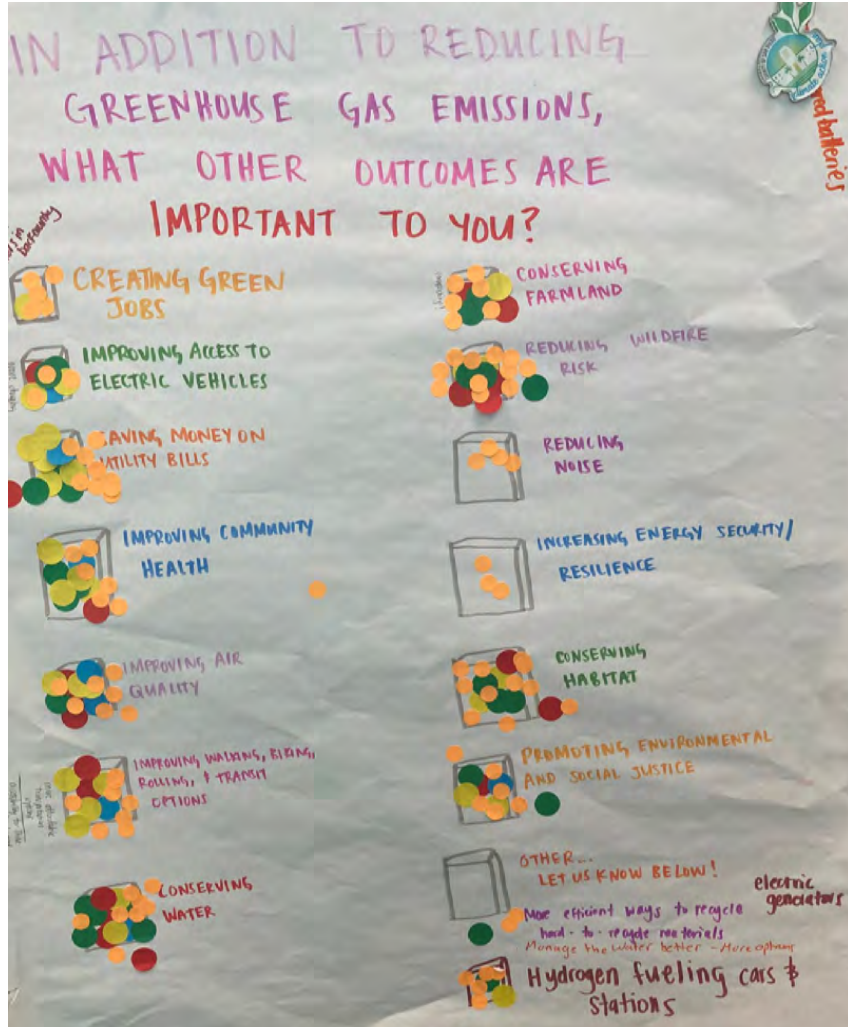 IN ADDITION TO REDUCING
GREENHOUSE GAS EMISSIONS,
WHAT OTHER OUTCOMES ARE
IMPORTANT TO YOU?
batteries
CREATING GREEN
JOBS
IMPROVING ACCESS TO
ELECTRIC VEHICLES
SAVING MONEY ON
UTILITY BILLS
IMPROVING COMMUNITY
HEALTH
IMPROVING AIR
QUALITY
IMPROVING WALKING, BIKING,
ROLLING, & TRANSIT
OPTIONS
CONSERVING
WATER
CONSERVING
FARMLAND
REDUCING WILDFIRE
RISK
REDUCING
NOISE
INCREASING ENERGY SECURITY/
RESILIENCE
CONSERVING
HABITAT
PROMOTING ENVIRONMENTAL
AND SOCIAL JUSTICE
OTHER...
LET US KNOW BELOW!
electric
generators
More efficient ways to recycle
hard-to-recycle materials
Manage the water better - More options
Hydrogen fueling cars &
stations